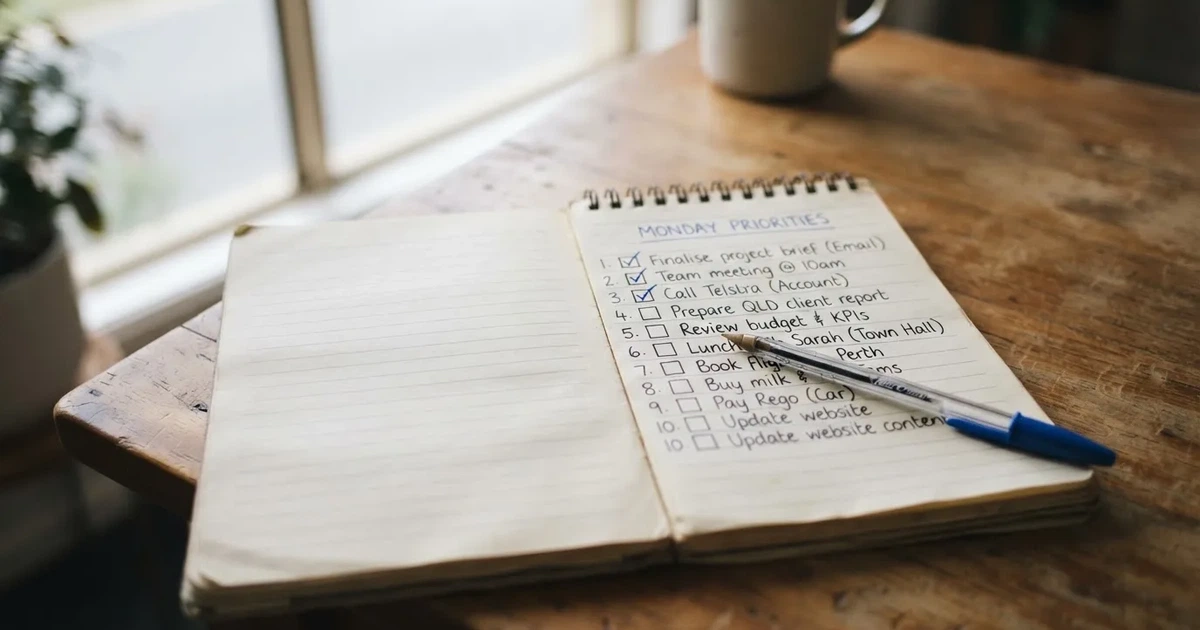 MONDAY PRIORITIES
1. ☑ Finalise project brief (Email)
2. ☑ Team meeting @ 10am
3. ☑ Call Telstra (Account)
4. ☐ Prepare QLD client report
5. ☐ Review budget & KPIs
6. ☐ Lunch Sarah (Town Hall)
7. ☐ Book Perth
8. ☐ Buy milk &
9. ☐ Pay Rego (Car)
10. ☐ Update website
10 ☐ Update website content